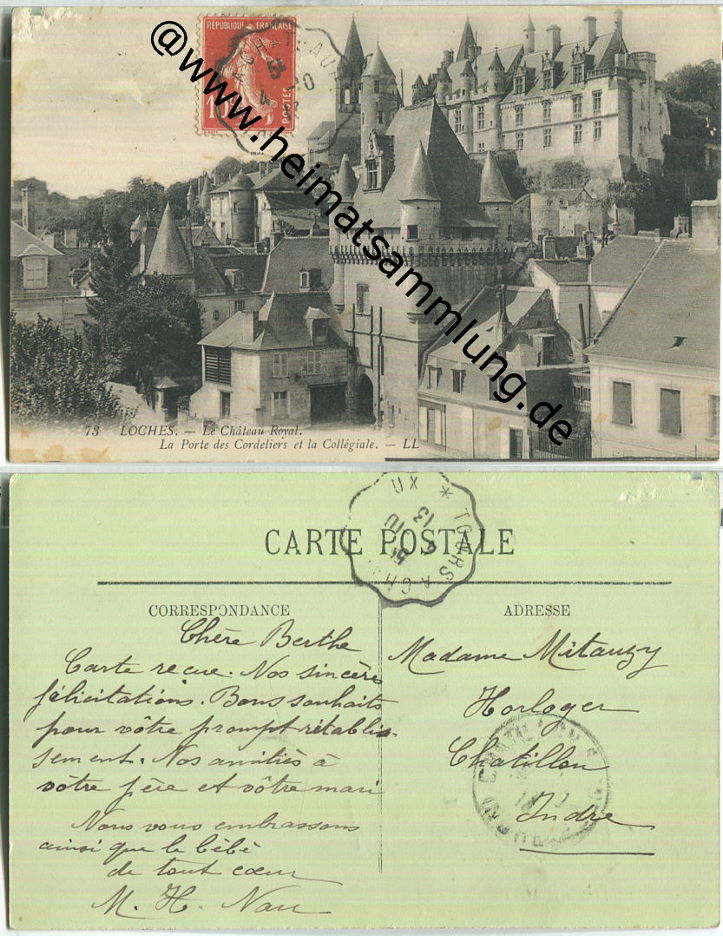 RÉPUBLIQUE FRANÇAISE
10
POSTES
A CHATEAUR
@www.heimatsammlung.de
73 LOCHES. — Le Château Royal.
La Porte des Cordeliers et la Collégiale. — LL
CARTE POSTALE
* TOURS A CH
UX
13
CORRESPONDANCE
ADRESSE
Chère Berthe
Carte reçue. Nos sincères
félicitations. Bons souhaits
pour vôtre prompt rétablis-
sement. Nos amitiés à
vôtre père et vôtre mari
Nous vous embrassons
ainsi que le bébé
de tout cœur
M. H. Nau
Madame Mitauzy
Horloger
Chatillon
Indre